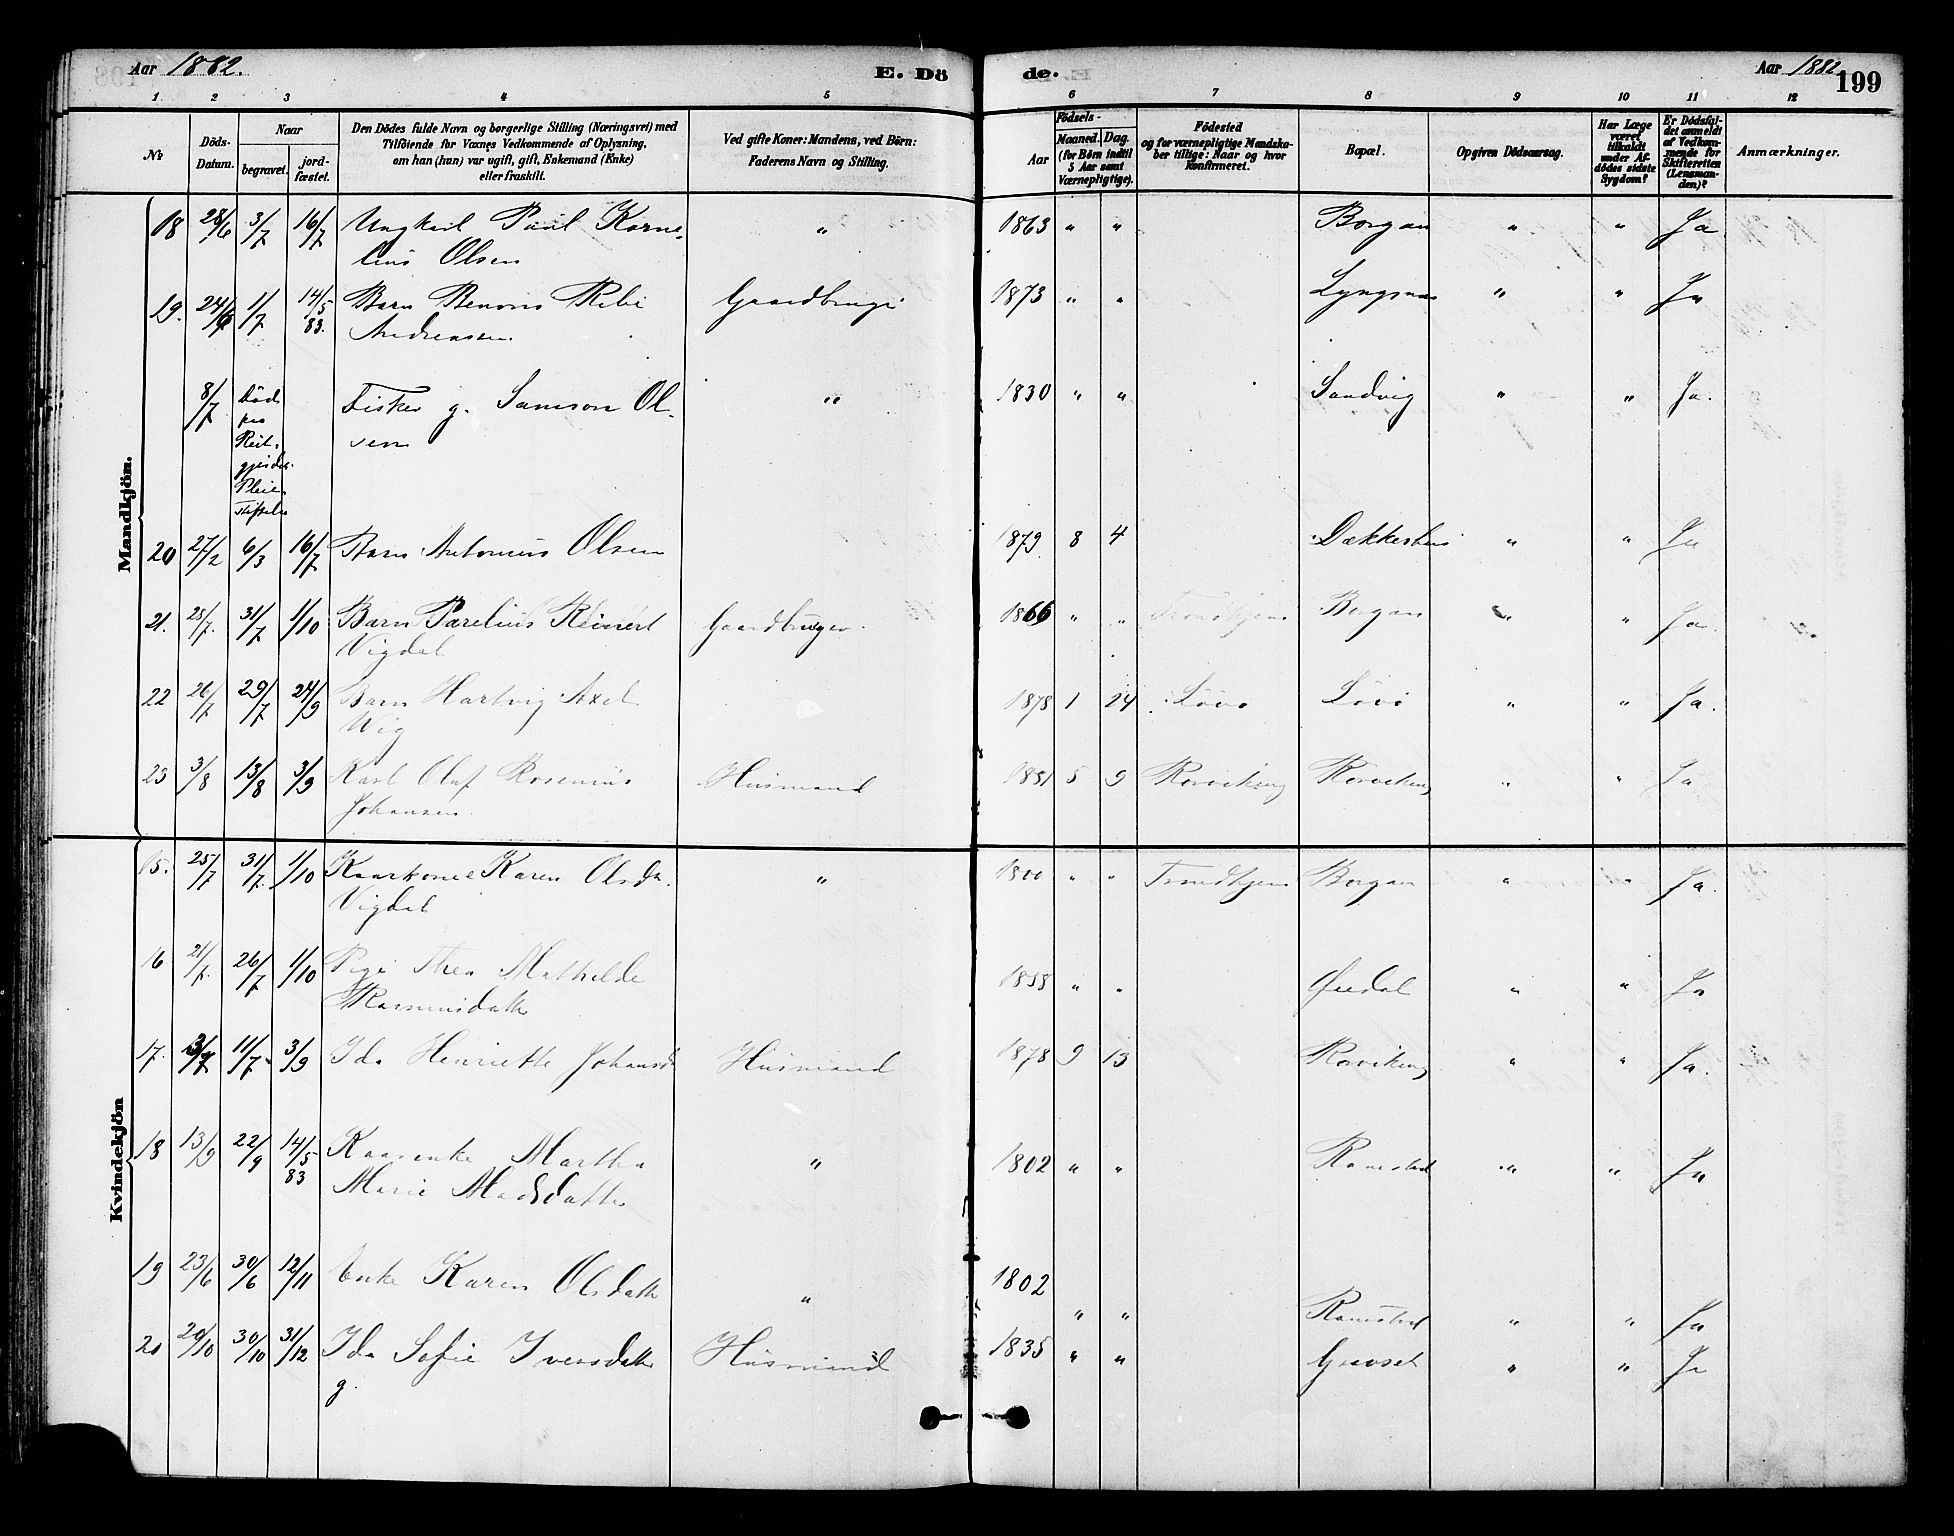 Aar 1882. E. Dö de. Aar 1882 199
1 2 3 4 5 6 7 8 9 10 11 12
No.
Döds-
Datum.
Naar
begravet. jord-
fæstet.
Den Dödes fulde Navn og borgerlige Stilling (Næringsvei) med
Tilföiende for Voxnes Vedkommende af Oplysning,
om han (hun) var ugift, gift, Enkemand (Enke)
eller fraskilt.
Ved gifte Koner: Mandens, ved Börn:
Faderens Navn og Stilling.
Födsels-
Aar Maaned. Dag.
(for Börn indtil
5 Aar samt
Værnepligtige).
Födested
og for værnepligtige Mandska-
ber tillige: Naar og hvor
konfirmeret.
Bopæl.
Opgiven Dödsaarsag.
Har Læge
været
tilkaldt
under Af-
dödes sidste
Sygdom?
Er Dödsfal-
det anmeldt
af Vedkom-
mende for
Skifteretten
(Lensman-
den)?
Anmærkninger.
Mandkjön.
18 28/6 3/7 16/7 Ungkarl Paul Korne- " 1863 " " Borgan " " Ja
lius Olsen
19. 24/6 1/7 14/5 83. Barn Benonis Gaardbruger 1873 " " Lyngsnes " " Ja
Andreassen
8/7 Död paa Reit- gjerdets Pleie- stiftelse Fisker g. Samson Ol- " 1830 " " Sandvig " " Ja.
sen
20 27/2 6/3 16/7 Barn Antonius Olsen 1879 8 4 Dækkerhus " " Ja
21. 25/7. 31/7 1/10 Barn Parelius Reinert Gaardbruger 1866 " " Trondhjem Borgan " " Ja.
Vigdal
22 26/7 29/7 24/9 Barn Hartvig Axel 1878 1 24 Lövö Lövö " " Ja.
Wig
23 3/8 13/8 3/9 Karl Oluf Rosenius Husmand 1881 5 9 Rörviken " " Ja
Johansen
Kvindekjön
15. 25/7 31/7. 1/10 Kaarkone Karen Olsd. " 1800 " " Trondhjem Borgan " " Ja.
Vigdal
16 21/7. 26/7 1/10 Pige Thea Mathilde 1858 " " " " Ja
Rasmusdatter
17. 3/7 11/7 3/9 Ida Henriette Johansd. Husmand 1878 9 13 " " Ja.
18 13/9 22/9 14/5 83 Kaarenke Martha " 1802 " " Ramstad " " Ja
Marie Madsdatter
19 23/6 30/6 12/11 Enke Karen Olsdatter " 1802 " " Ramstad " " Ja
20 20/10 30/10 31/12 Ida Sofie Iversdatter Husmand 1835 " " " " Ja
g.